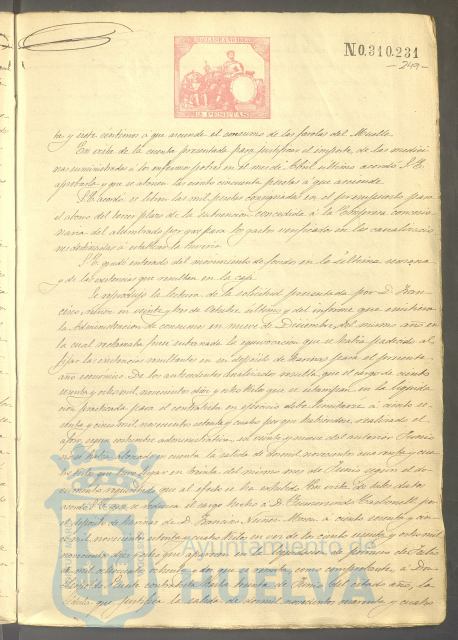 N.0.310.231
249
PESETAS
ta y siete centimos á que asciende el consumo de las farolas del Muelle.
En vista de la cuenta presentada para justificar el importe de las medici
nas suministradas á los enfermos pobres en el mes de Abril último acordó S.E.
aprobarla y que se abonen las ciento cincuenta pesetas á que asciende.
S.E. acordó se libren las mil pesetas consignadas en el presupuesto para
el abono del tercer plazo de la subvencion concedida á la Empresa concesio
naria del alumbrado por gas para los gastos verificados en las canalizacio
nes destinadas á establecer la
S.E. quedó enterado del movimiento de fondos en la última semana
y de las existencias que resultan en la caja.
Se reprodujo la lectura de la solicitud presentada por D. Fran
cisco en veinte de Octubre último y del informe que emitiera
la Administracion de consumos en nueve de Diciembre del mismo año en
la cual reclamaba fuese subsanada la equivocacion que se habia padecido al
fijar las existencias resultantes en su depósito de harinas para el presente
año económico. De los antecedentes resulta que el cargo de ciento
sesenta y ocho mil, novecientos diez y ocho kilos que se estampan en la liquida
cion practicada para el contratista en ejercicio debe limitarse á ciento se
senta y cinco mil, novecientos setenta y cuatro por que habiendose realizado el
aforo, segun costumbre administrativa, en veinte y nueve del anterior Junio
no se habia tomado en cuenta la salida de dos mil novecientos cuarenta y cua
tro kilos que tuvo lugar en treinta del mismo mes de Junio segun el do
cumento requisitado que al efecto se ha exhibido. En vista de tales datos
acordó S.E. que se reduzca el cargo hecho á D. Gumersindo Carbonell por
el depósito de harinas de D. Francisco á ciento sesenta y cin
co mil, novecientos setenta y cuatro kilos en vez de los ciento sesenta y ocho mil
novecientos diez y ocho que aparecen en la liquidacion de primero de Julio
de mil ochocientos ochenta y dos que de cuenta como comprobante á Don
contratista hasta treinta de Junio del citado año, la
que justifica la salida de dos mil novecientos cuarenta y cuatro
Ayuntamiento de
HUELVA